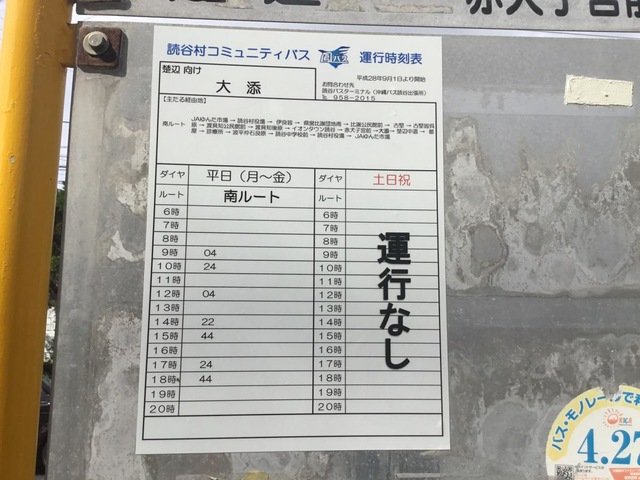 赤犬子宮前
読谷村コミュニティバス 運行時刻表
楚辺 向け
平成28年9月1日より開始
大 添
お問合わせ先
読谷バスターミナル(沖縄バス読谷出張所)
℡ 958-2015
【主たる経由地】
南ルート
JAゆんた市場 → 読谷村役場 → 伊良皆 → 県営比謝団地南 → 比謝公民館前 → 古堅 → 古堅
原 → 渡具知公民館前 → 渡具知後原 → イオンタウン読谷 → 赤犬子宮前 → 大添 → 楚辺中道 → 都
屋 → 診療所 → 波平仲石良原 → 読谷中学校前 → 読谷村役場 → JAゆんた市場
ダイヤ 平日(月~金) ダイヤ 土日祝
ルート 南ルート ルート
6時 6時
7時 7時
8時 8時
9時 04 9時
10時 24 10時
11時 11時
12時 04 12時
13時 13時
14時 22 14時
15時 44 15時
16時 16時
17時 24 17時
18時 44 18時
19時 19時
20時 20時
運行なし
バス・モノレールで
4.27